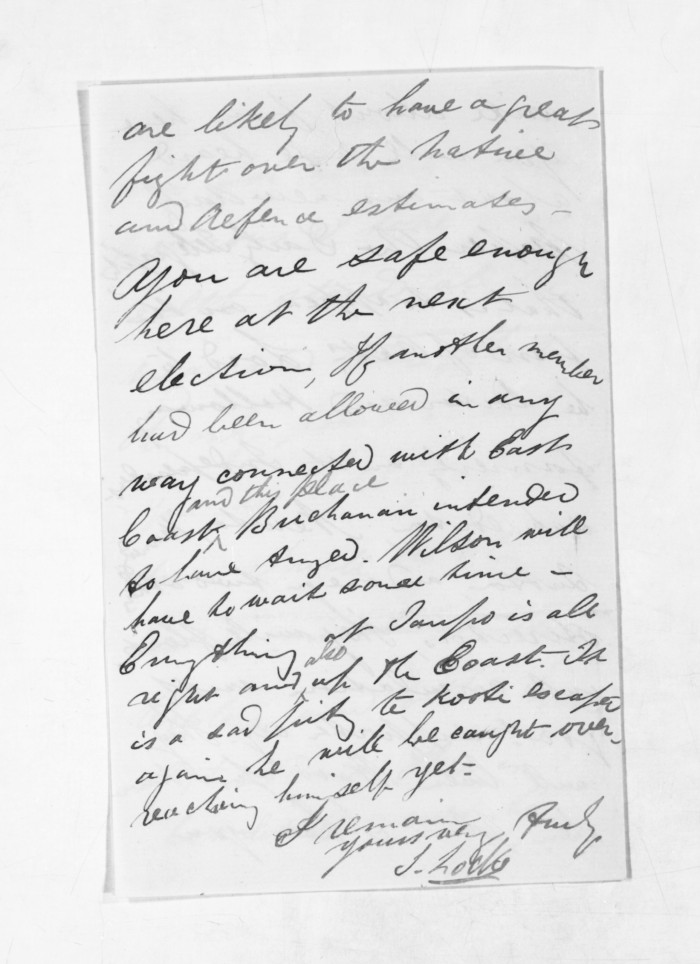 are likely to have a great
fight over the native
and defence estimates -
You are safe enough
here at the next
election, If another member
had been allowed in any
way connected with East
and this place
Coast Buchanan intended
to have Wilson will
have to wait some time -
Everything at Taupo is all
also
right and up the Coast. It
is a sad pity te Kooti escaped
again he will be caught over-
reaching himself yet -
I remain
yours very truly
S. Locke